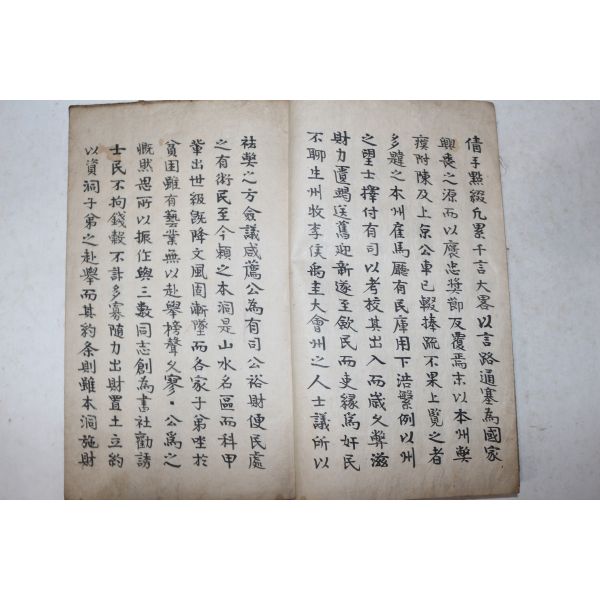 倩手點綴凡累千言大畧以言路通塞爲國家
興喪之源而以褒忠獎節反覆焉末以本州獘
瘼附陳及上京公車已輟捧疏不果上覽之者
多韙之本州雇馬廳有民庫用下浩繁例以州
之望士擇付有司以考校其出入而歲久弊滋
財力匱竭送舊迎新遂至斂民而吏緣爲奸民
不聊生州牧李侯禹圭大會州之人士議所以
祛獘之方僉議咸薦公為有司公裕財便民處
之有術民至今頼之本洞是山水名區而科甲
輩出世級旣降文風固漸墜而各家子弟唑於
貧困雖有藝業無以赴擧榜聲久寥公為之
慨然思所以振作與三數同志創為書社勸誘
士民不拘錢穀不計多寡隨力出財置土立約
以資洞子弟之赴擧而其約条則雖本洞施財